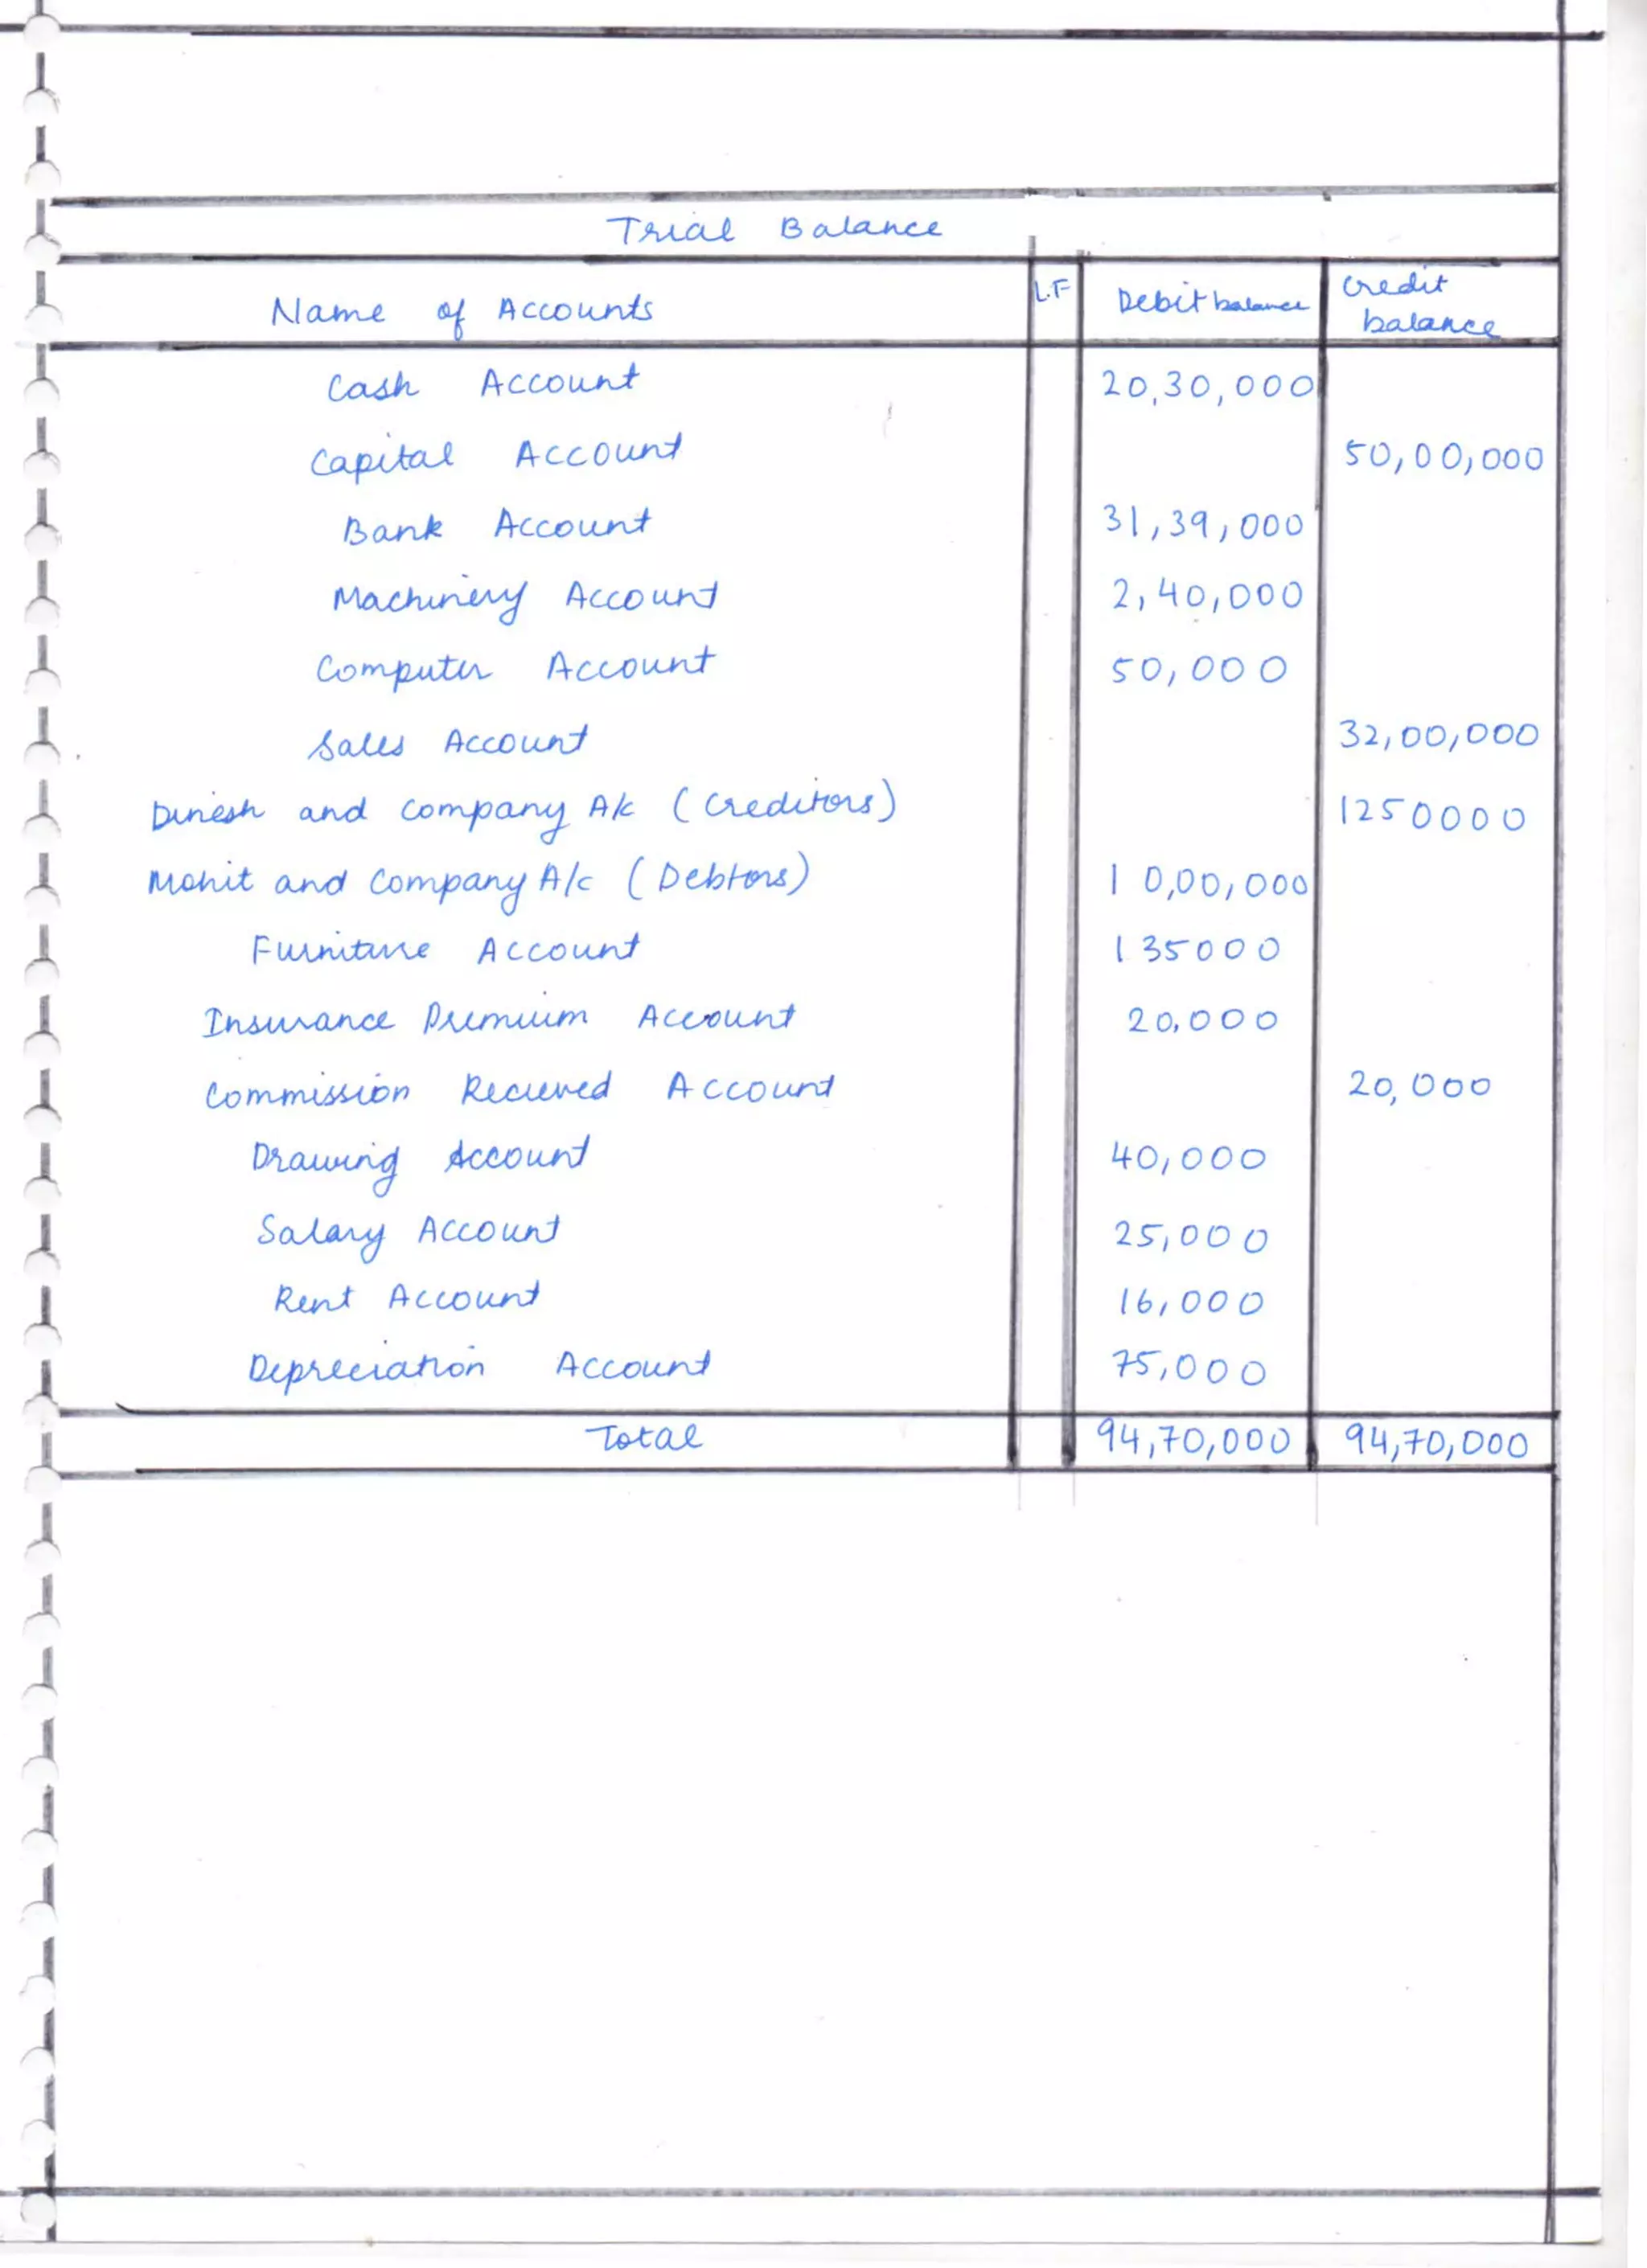 Trial Balance
Name of Accounts L.F Debit balance Credit balance
Cash Account 20,30,000
Capital Account 50,00,000
Bank Account 31,39,000
Machinery Account 2,40,000
Computer Account 50,000
Sales Account 32,00,000
Dinesh and Company A/c (Creditors) 1250000
Mohit and Company A/c (Debtors) 10,00,000
Furniture Account 135000
Insurance Premium Account 20,000
Commission Recieved Account 20,000
Drawing Account 40,000
Salary Account 25,000
Rent Account 16,000
Depreciation Account 75,000
Total 94,70,000 94,70,000